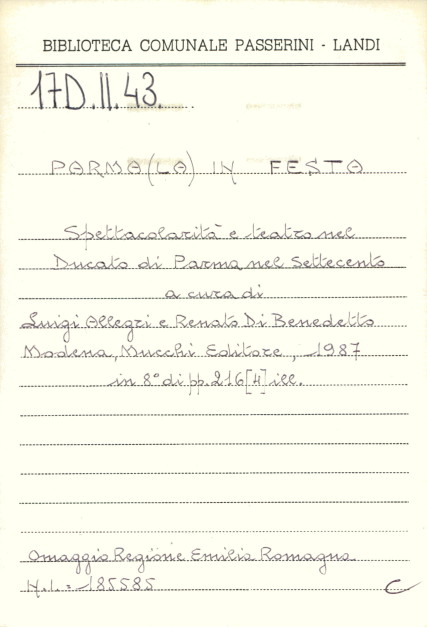 BIBLIOTECA COMUNALE PASSERINI - LANDI
17D.II.43.
PARMA(LA) IN FESTA
Spettacolarità e teatro nel
Ducato di Parma nel Settecento
a cura di
Luigi Allegri e Renato Di Benedetto
Modena, Mucchi Editore, 1987
in 8° di pp. 216[4] ill.
Omaggio Regione Emilia Romagna
N.I. = 185585
C